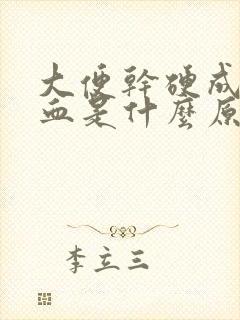 大便幹硬成
血是什麼原
李立三